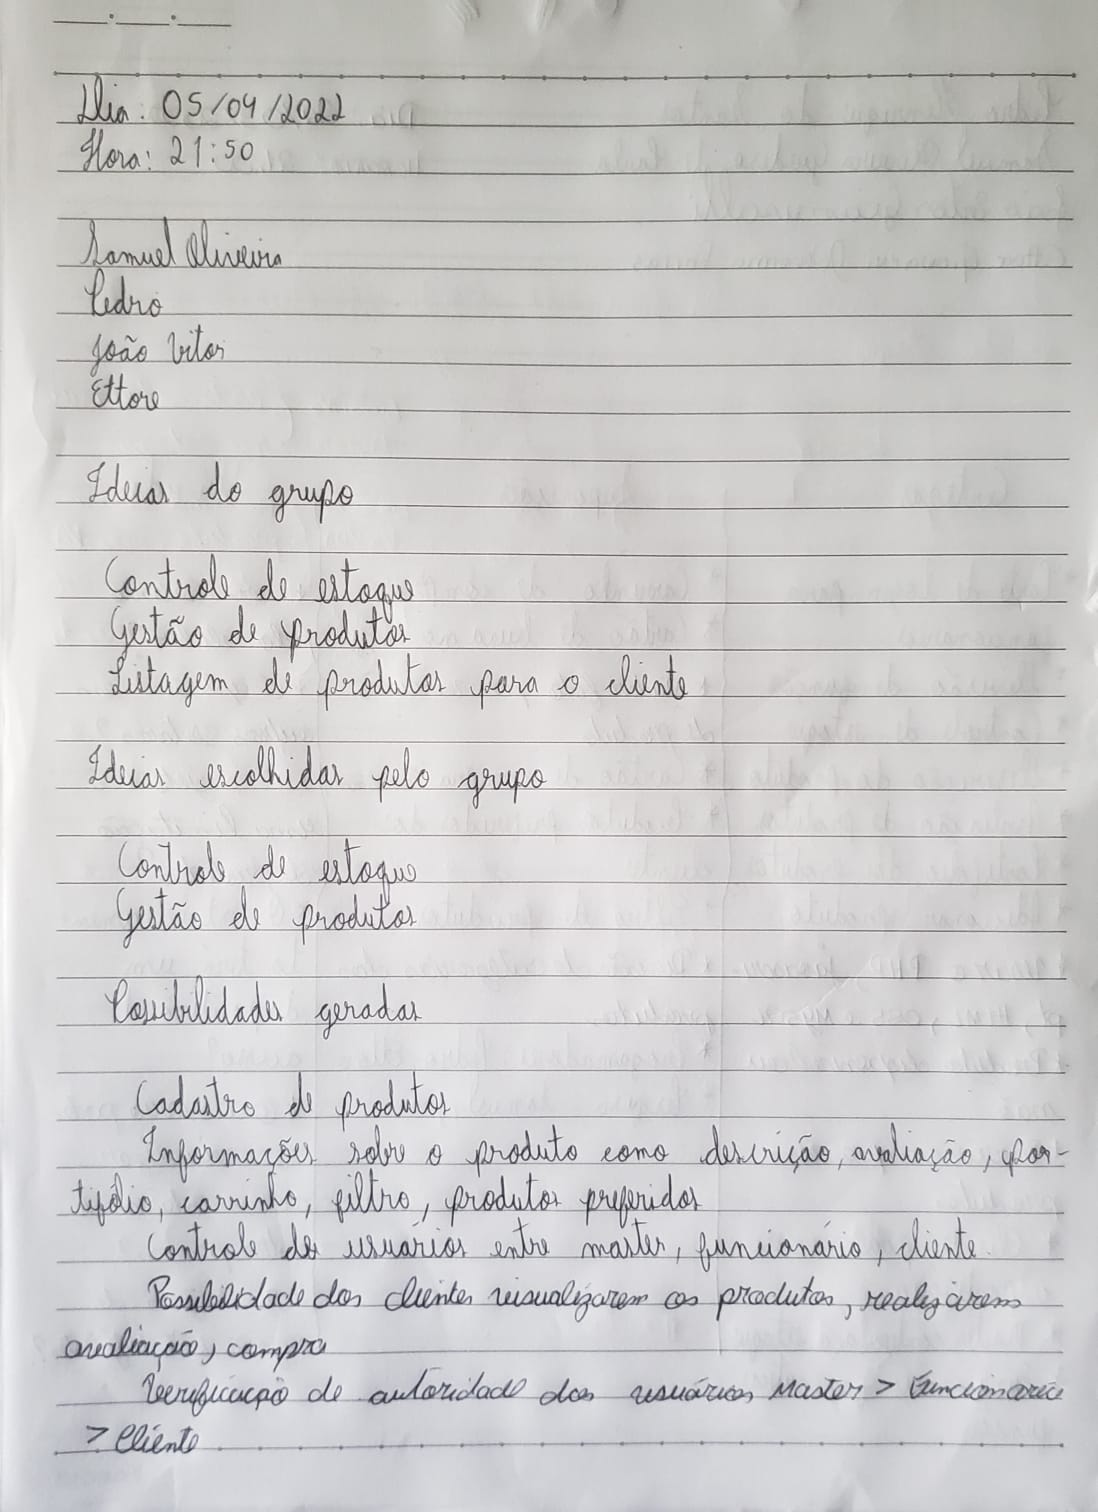 Dia: 05/04/2022
Hora: 21:50
Samuel Oliveira
Pedro
João Vitor
Ettore
Ideias do grupo
Controle de estoque
Gestão de produtos
Listagem de produtos para o cliente
Ideias escolhidas pelo grupo
Controle de estoque
Gestão de produtos
Possibilidades geradas
Cadastro de produtos
Informações sobre o produto como descrição, avaliação, por-
tifólio, carrinho, filtro, produtos preferidos
Controle de usuários entre master, funcionário, cliente
Possibilidade dos clientes visualizarem os produtos, realizarem
avaliação, compra
Verificação de autoridade dos usuários Master > Funcionario
> Cliente